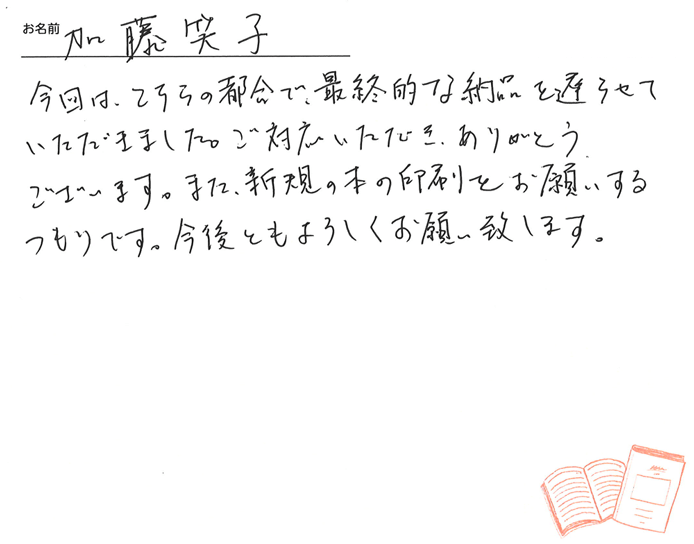 お名前 加藤笑子
今回は、こちらの都合で、最終的な納品を遅らせて
いただきました。ご対応いただき、ありがとう
ございます。また、新規の本の印刷をお願いする
つもりです。今後ともよろしくお願い致します。